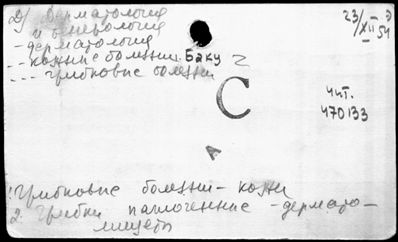 2) Дерматология
и венерология
- дерматология
-- кожные болезни Баку 2
--- грибковые болезни
23/XII 54
С
чит.
470133
А
1. Грибковые болезни - кожи
2. Грибки патогенные - дермато-
мицеты